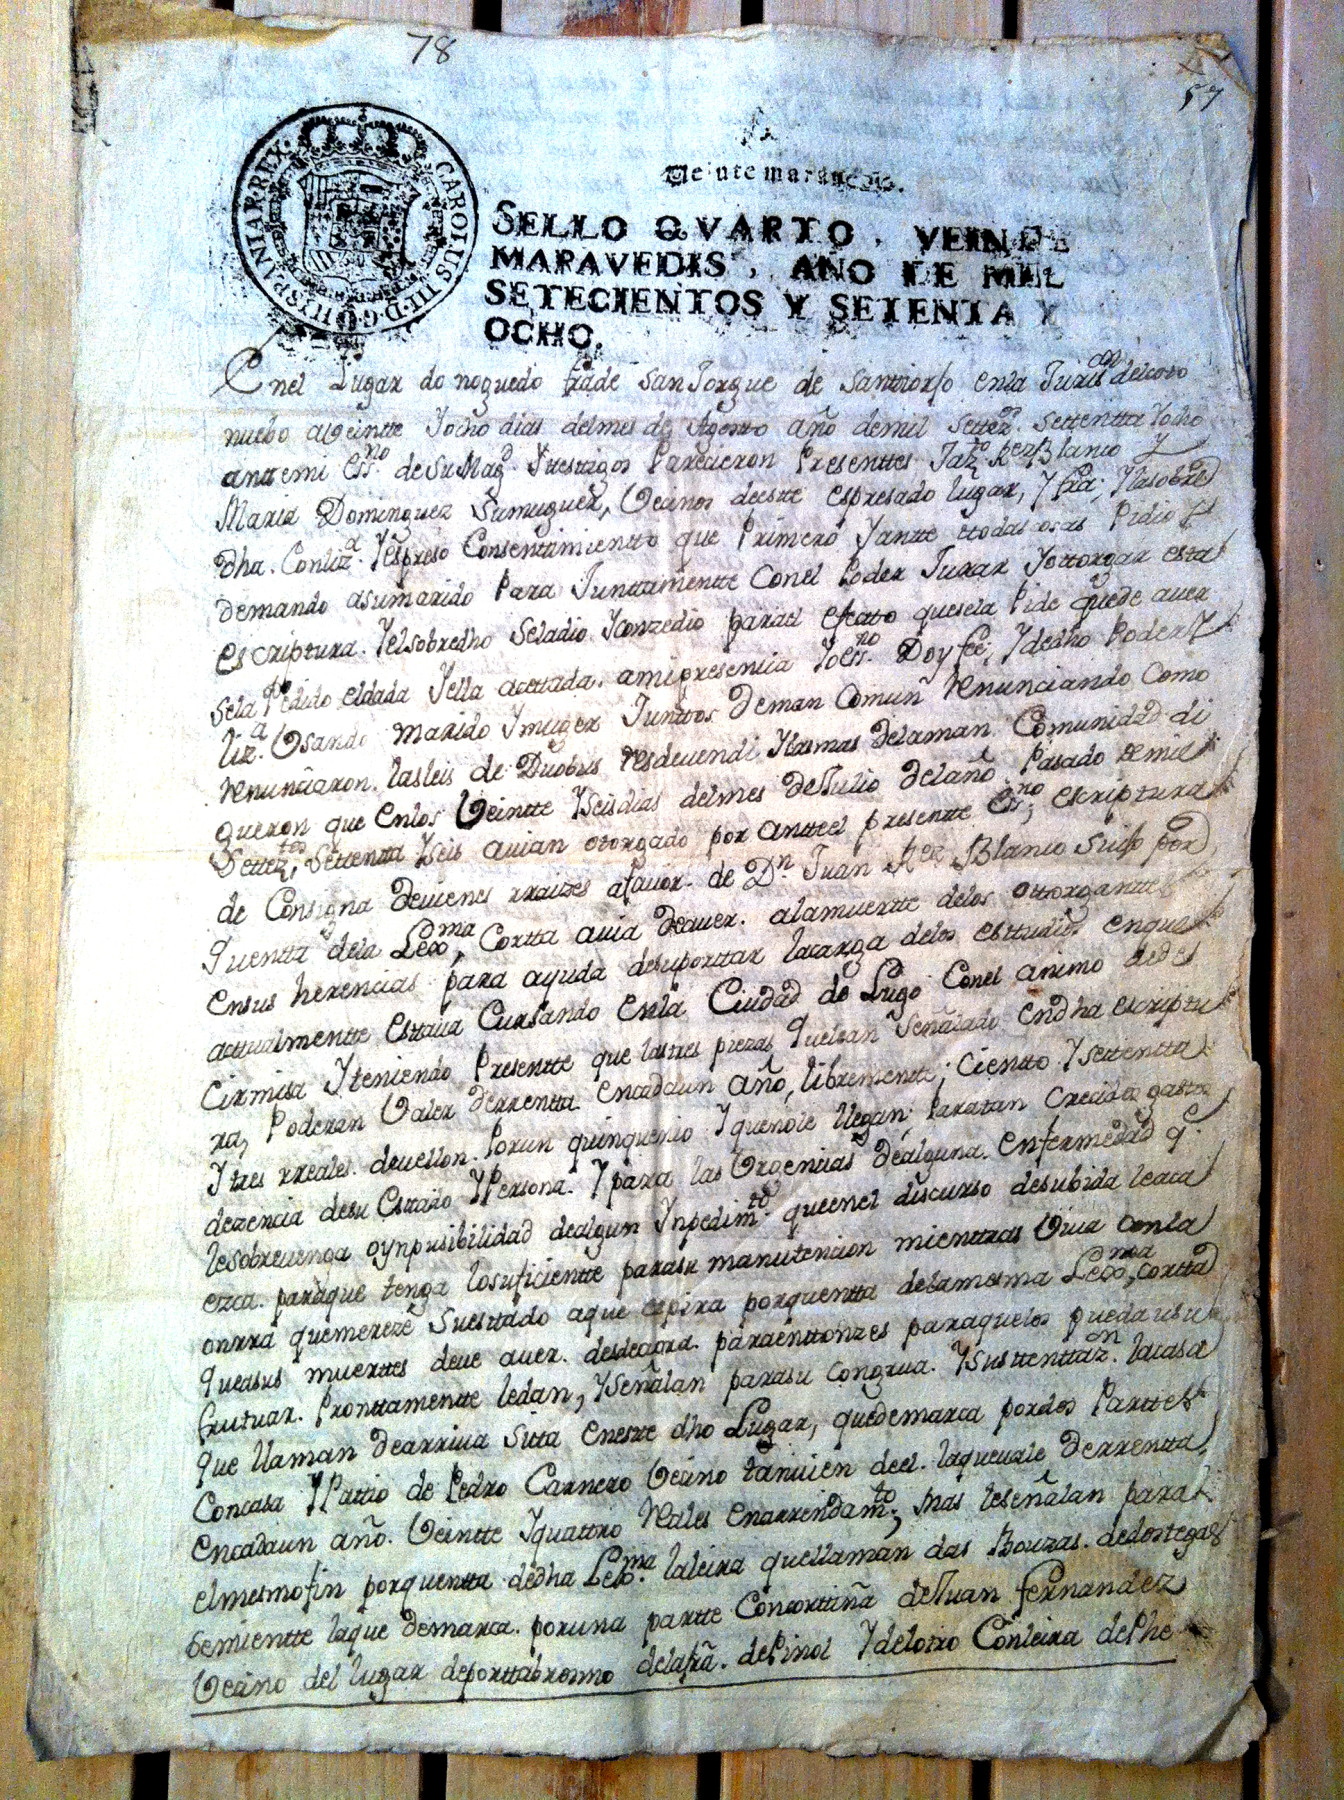 78
57
CAROLUS III D G HISPANIAR REX
Veinte maravedis.
SELLO QVARTO, VEINTE
MARAVEDIS, AÑO DE MIL
SETECIENTOS Y SETENTA Y
OCHO.
Enel Lugar do noguedo fra de San Jorgue de Santtiorjo enla Juris.on delcoto
nuebo a Veintte Yocho dias delmes de Agosto año demil settez.os settentta Yocho
antemi ess.no de Su Mag.d Ytestigos Parecieron Presenttes Jazto Rez Blanco Y
Maria Dominguez Sumuguer, Vecinos deeste espresado lugar, Y fra; Ylasobre
dha. Conliz.a Yespreso Consentimientto que Primero Yantte ttodas cosas Pidio
demando asumarido Para Junttamentte Conel Poder Jurar Yottorgar esta
escriptura. Yelsobredho Seladio Yconzedio parael efecto quesela Pide quede aver
sela Pedido eldada Yella acettada. amipresencia Yoess.no Doy fee; Ydedho Poder Y
liz.a Vsando marido Ymuger Junttos deman Comun Renunciando Como
Renunciaron. lasleis de Duobus resdevendi Ylasmas delaman Comunidad di
gueron que Enlos Veintte Yseis dias delmes deJulio delaño. Pasado demil
Settez.tos Settentta Yseis avian otorgado por antteel presentte Ess.no, escriptura
de Consigna devienes rraizes afavor de D.n Juan Rez Blanco Suijo por
quentta dela Lexx.ma Cortta avia deaver. alamuertte delos ottorganttes
Ensus herencias para ayuda desuporttar lacarga delos esttudios enque
acttualmentte estava Cursando Enla Ciudad de Lugo Conel animo dedes
cirmisa Yteniendo Presentte que lastres piezas quelean Señalado Endha escriptu
ra, Poderan Valer derrentta Encadaun año, libremente; Cientto Ysettentta
Ytres rreales. devellon. Porun quinquenio Yquenole llegan; Paratan Crecidos gastos
dezencia desu Estado YPersona. Ypara las Vrgencias dealguna Enfermedad q.e
lesobrevenga oynpusibilidad dealgun Ynpedim.to queenel discurso desubida leaca
ezca. paraque tenga losuficientte parasu manutencion mienttras Viva conla
onrra quemereze Suestado aque aspira porquentta delamesma Lexx.ma, cortta
queasus muerttes deve aver. desdeaora. paraenttonzes paraquelos pueda usu
fructuar. Pronttamentte ledan, Yseñalan parasu Congrua. Ysusttenttaz.on lacasa
que llaman dearriva Sitta Eneste dho Lugar, quedemarca pordos Parttes
Concasa YPattio de Pedro Carnero Vecino tanvien deel. laquevale derrentta
Encadaun año. Veintte Yquattro Reales Enarrendam.to; mas leseñalan para
elmesmofin porquentta dedha Lexx.ma laleira quellaman das Bouzas. dedostegas
semientte laque demarca. poruna partte Concorttiña deJuan fernandez
Vecino del lugar deporttabrosmo delafra. dePinol Ydelotro Conleira dePhe